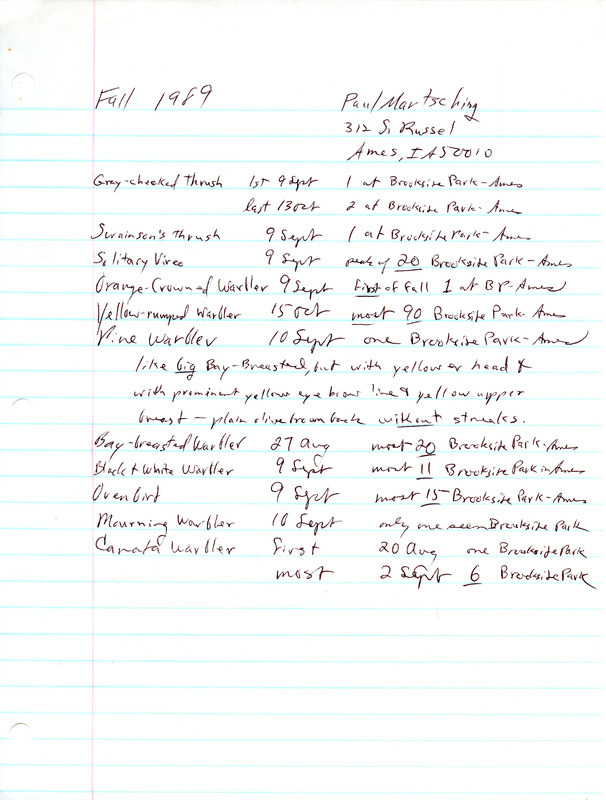 Fall 1989 Paul Martsching
312 S. Russel
Ames, IA 50010
Gray-cheeked Thrush 1st 9 Sept 1 at Brookside Park-Ames
last 13 Oct 2 at Brookside Park-Ames
Swainson's Thrush 9 Sept 1 at Brookside Park-Ames
Solitary Vireo 9 Sept peak of 20 Brookside Park-Ames
Orange-Crowned Warbler 9 Sept First of fall 1 at BP-Ames
Yellow-rumped Warbler 15 Oct most 90 Brookside Park-Ames
Pine Warbler 10 Sept one Brookside Park-Ames
like big Bay-Breasted, but with yellower head &
with prominent yellow eye brow line & yellow upper
breast - plain olive brown back without streaks.
Bay-breasted Warbler 27 Aug most 20 Brookside Park-Ames
Black & White Warbler 9 Sept most 11 Brookside Park in Ames
Ovenbird 9 Sept most 15 Brookside Park-Ames
Mourning Warbler 10 Sept only one seen Brookside Park
Canada Warbler first 20 Aug one Brookside Park
most 2 Sept 6 Brookside Park